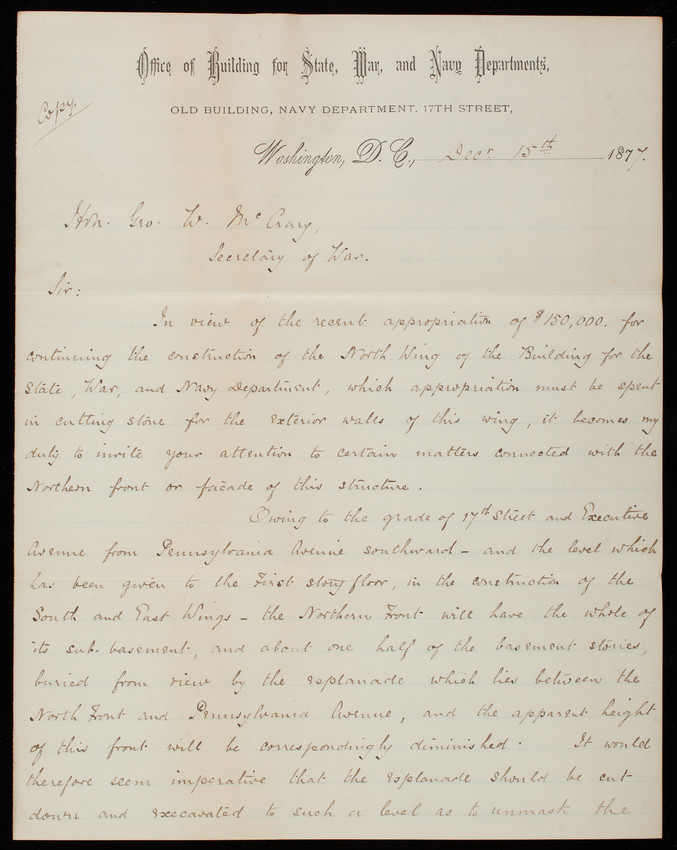 Office of Building for State, War, and Navy Departments,
Copy.
OLD BUILDING, NAVY DEPARTMENT. 17TH STREET,
Washington, D. C., Decr 15th 1877.
Hon. Geo. W. McCrary,
Secretary of War.
Sir:
In view of the recent appropriation of $150,000. for
continuing the construction of the North Wing of the Building for the
State, War, and Navy Department, which appropriation must be spent
in cutting stone for the exterior walls of this wing, it becomes my
duty to invite your attention to certain matters connected with the
Northern front or facade of this structure.
Owing to the grade of 17th Street and Executive
Avenue from Pennsylvania Avenue southward - and the level which
has been given to the First story floor, in the construction of the
South and East Wings - the Northern Front will have the whole of
its sub-basement, and about one half of the basement stories,
buried from view by the esplanade which lies between the
North Front and Pennsylvania Avenue, and the apparent height
of this front will be correspondingly diminished. It would
therefore seem imperative that the esplanade should be cut
down and excavated to such a level as to unmask the